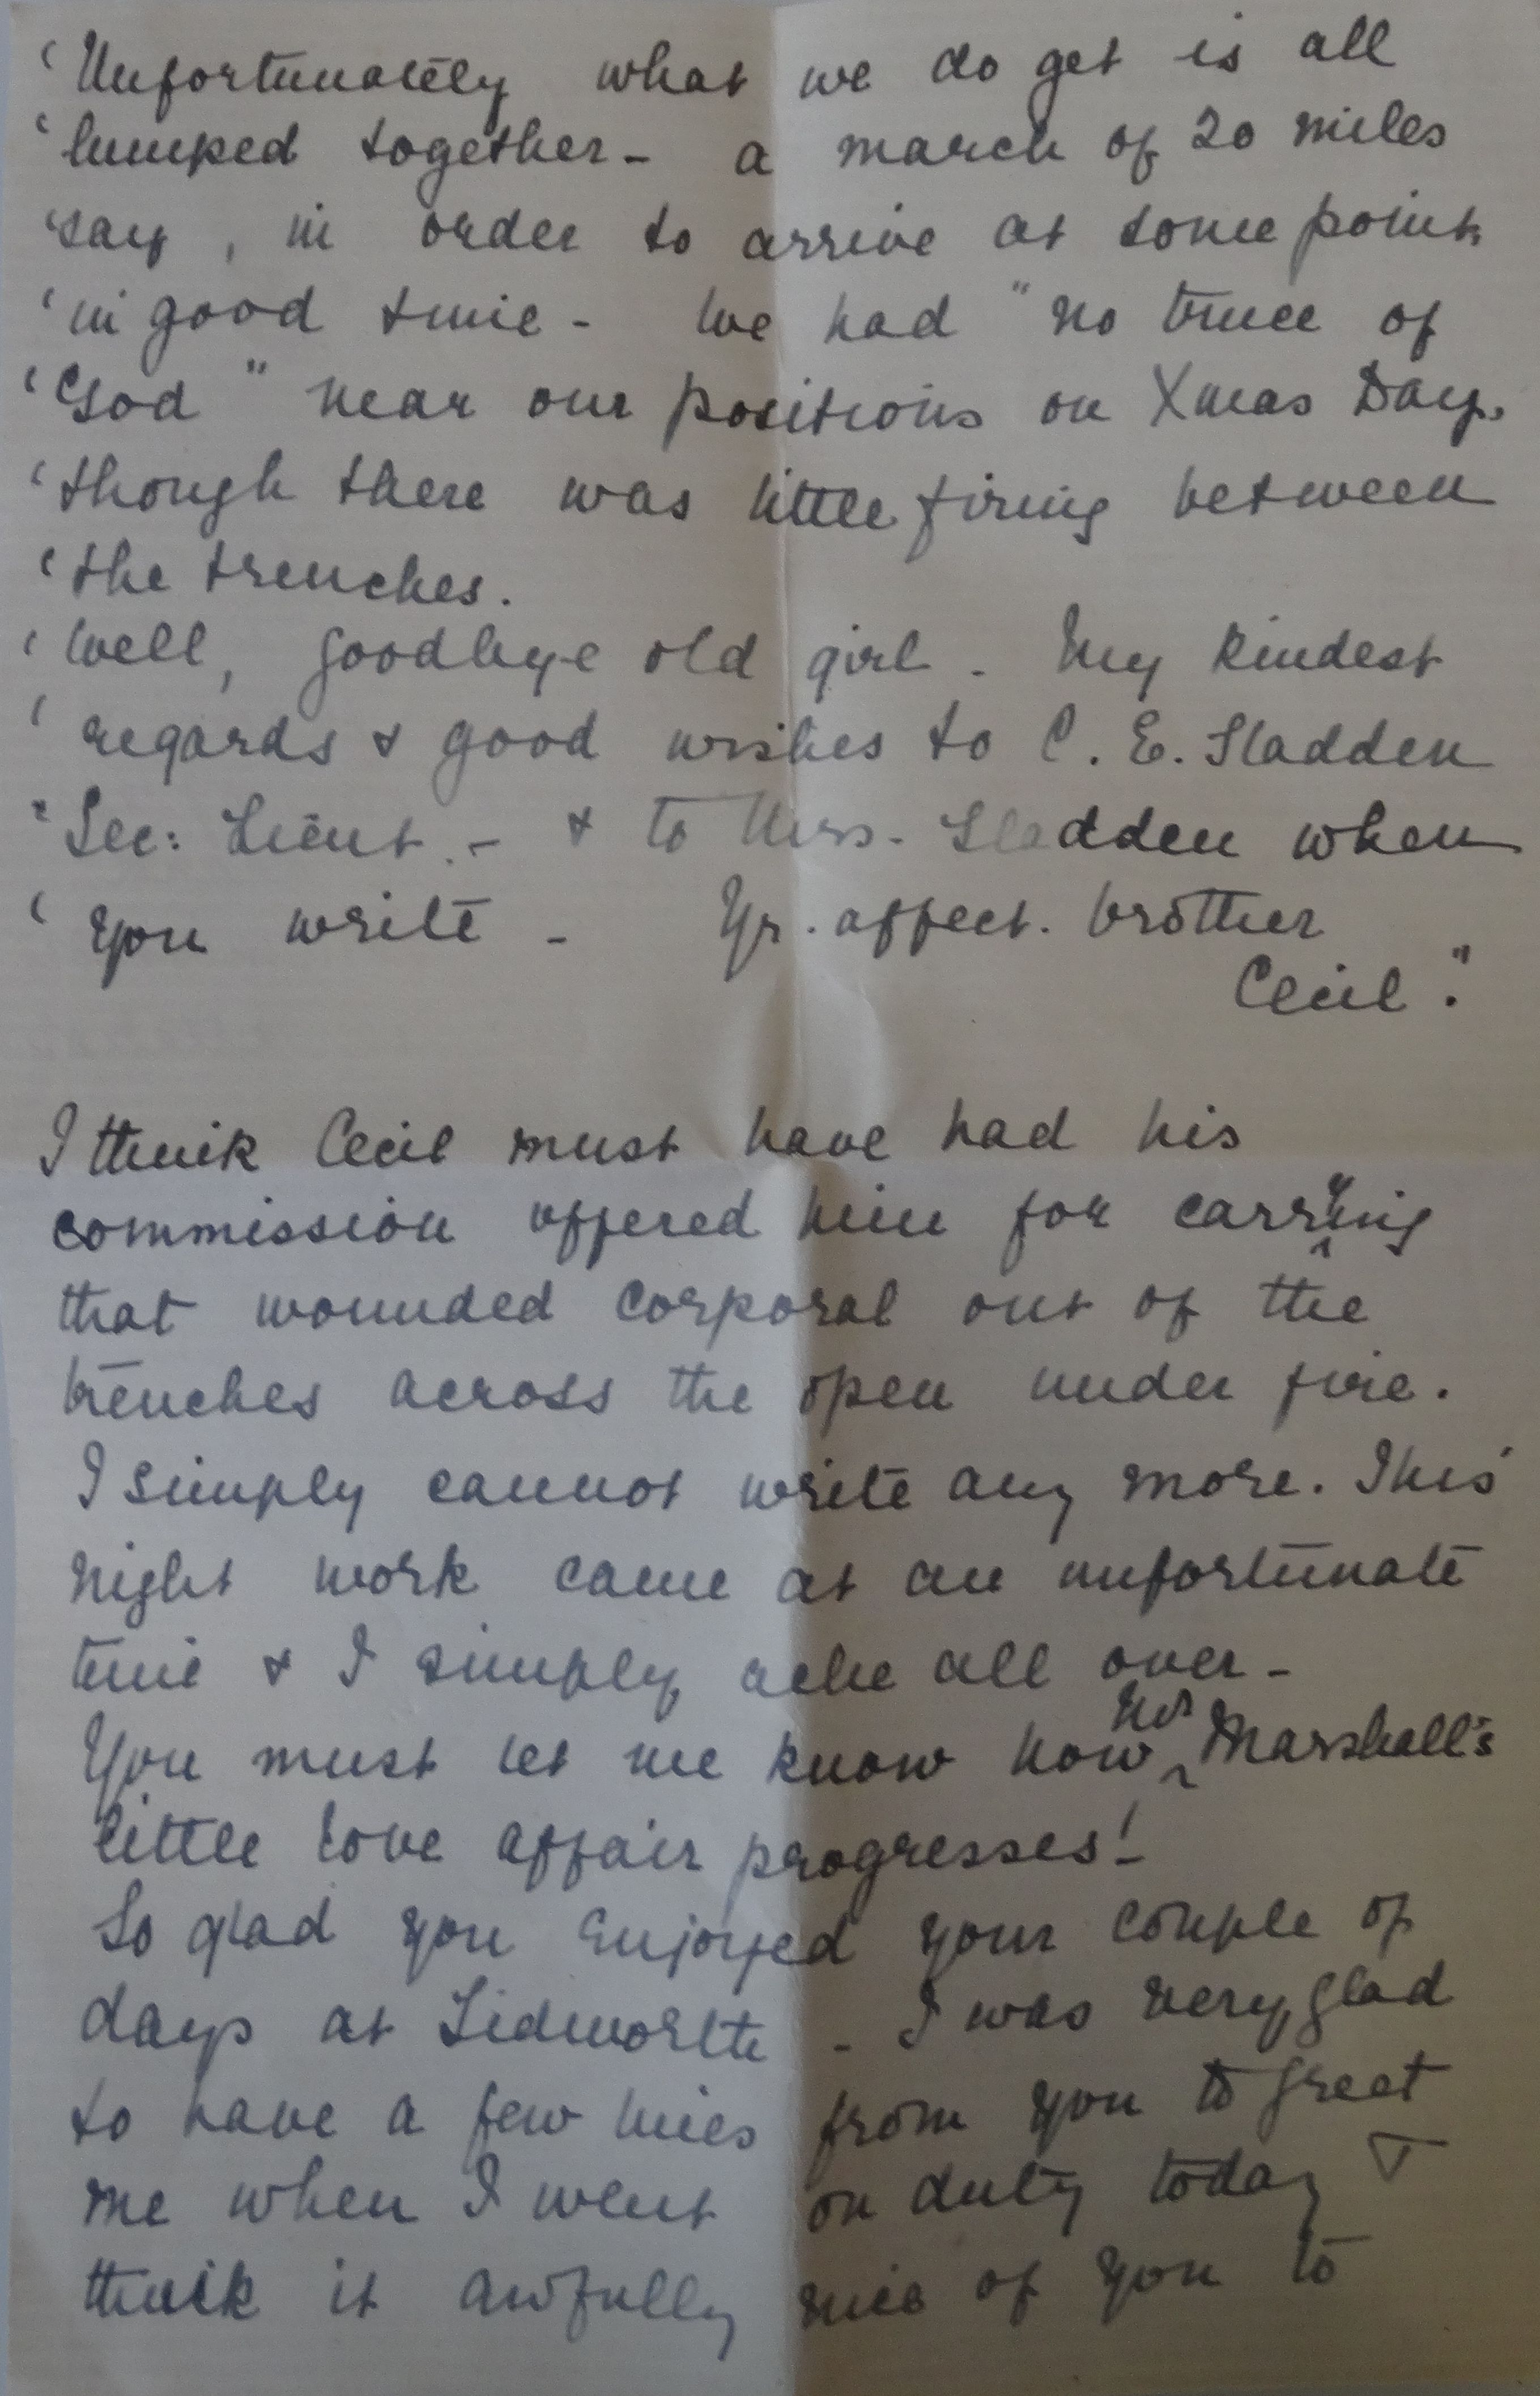 'Unfortunately what we do get is all
'lumped together - a march of 20 miles
'say, in order to arrive at some point
'in good time - We had "no truce of
'God" near our positions on Xmas Day,
'though there was little firing between
'the trenches.
'Well, goodbye old girl - My kindest
'regards & good wishes to C. E. Sladden
"Sec: Lieut. - & to Mrs. Sladden when
'you write - Yr. affect. brother
Cecil."
I think Cecil must have had his
commission offered him for carrying
that wounded corporal out of the
trenches across the open under fire.
I simply cannot write any more. This
night work came at an unfortunate
time & I simply ache all over -
You must let me know how Mr Marshall's
little love affair progresses!
So glad you enjoyed your couple of
days at Tidworth - I was very glad
to have a few lines from you to greet
me when I went on duty today I
think it awfully nice of you to